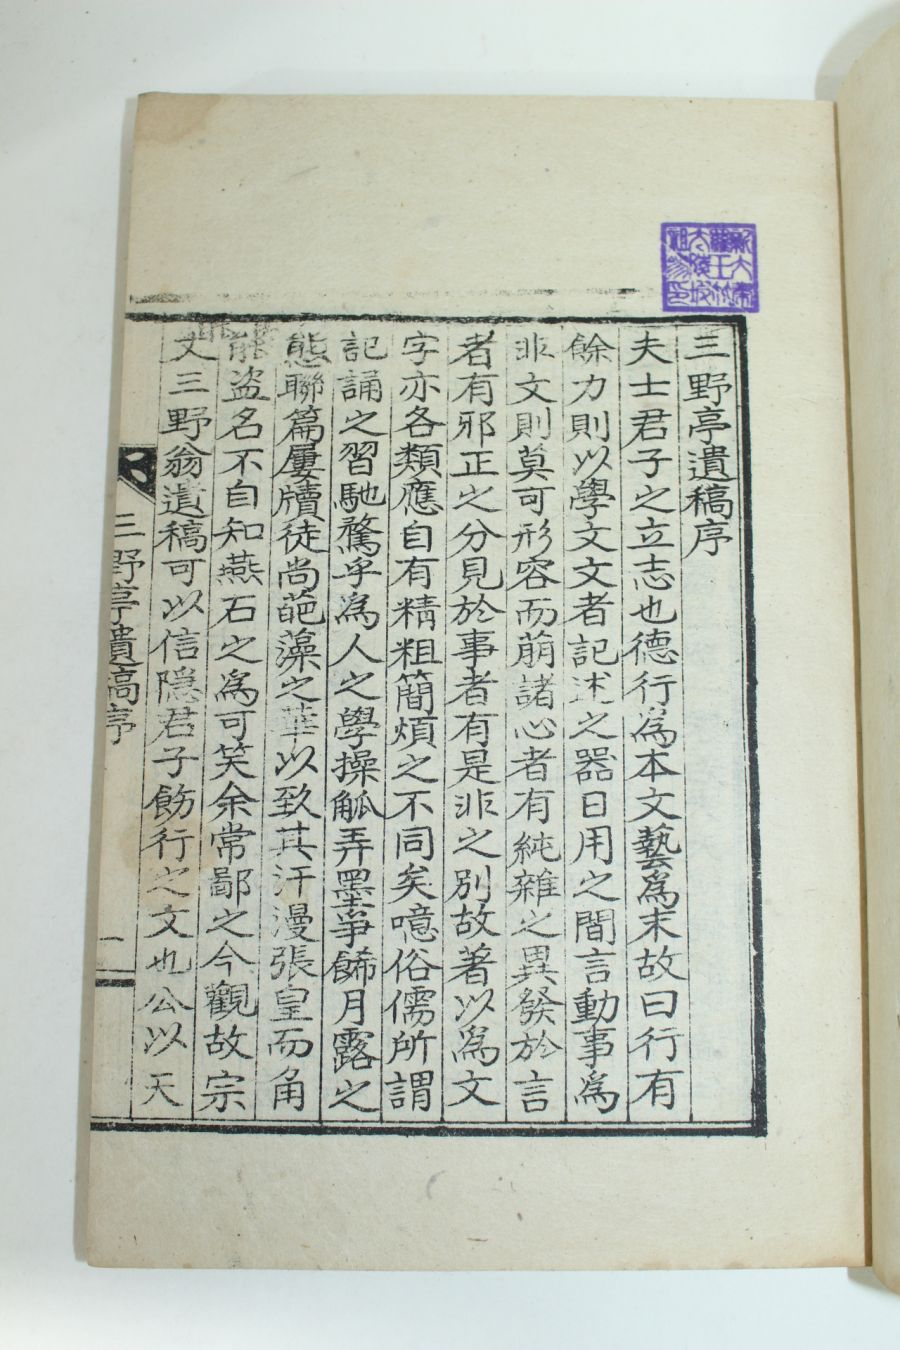 三野亭遺稿序
夫士君子之立志也德行爲本文藝爲末故曰行有
餘力則以學文文者記述之器日用之間言動事爲
非文則莫可形容而萠諸心者有純雜之異發於言
者有邪正之分見於事者有是非之別故著以爲文
字亦各類應自有精粗簡煩之不同矣噫俗儒所謂
記誦之習馳騖乎爲人之學操觚弄墨爭餙月露之
態聯篇屢牘徒尚葩藻之華以致其汗漫張皇而角
能盜名不自知燕石之爲可笑余常鄙之今觀故宗
丈三野翁遺稿可以信隱君子飭行之文也公以天
三野亭遺稿序
一